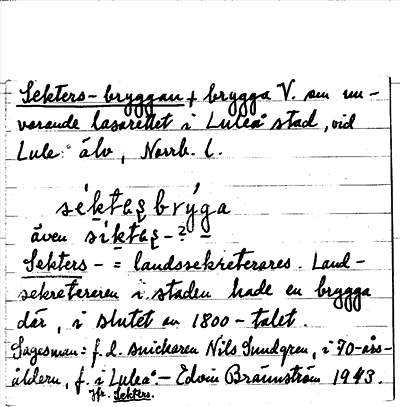 Sekters-bryggan, brygga V. om nu-
varande lasarettet i Luleå stad, vid
Lule älv, Norrb. l.
även
Sekters- = landssekreterares. Land-
sekreteraren i staden hade en brygga
där, i slutet av 1800-talet.
Sagesman: f. d. snickaren Nils Sundgren, i 70-års-
åldern, f. i Luleå. - Edvin Brännström 1943.
Jfr. Sekters.